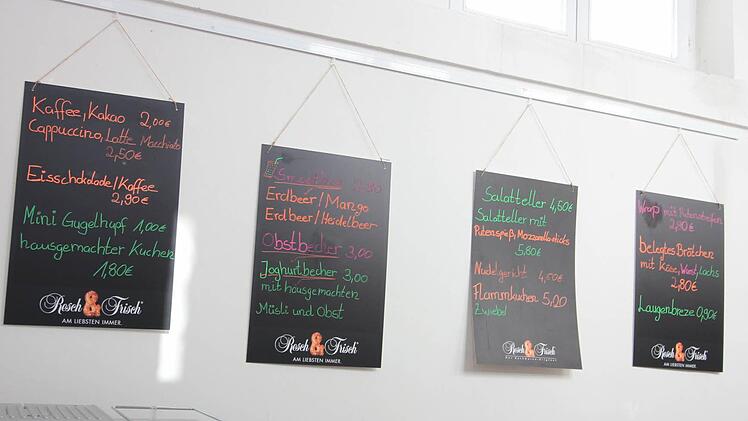 Kaffee, Kakao 2,00€
Cappuccino, Latte Macchiato
2,50€
Eisschokolade/Kaffee
2,90€
Mini Gugelhupf 1,00€
hausgemachter Kuchen
1,80€
Resch & Frisch
AM LIEBSTEN IMMER.
Erdbeer/Mango
Erdbeer/Heidelbeer
Obstbecher 3,00
Joghurtbecher 3,00
mit hausgemachten
Müsli und Obst
Resch & Frisch
AM LIEBSTEN IMMER.
Salatteller 4,60€
Salatteller mit
Putenspieß, Mozzarellasticks
5,80€
Nudelgericht 4,60€
Flammkuchen 5,20
Zwiebel
Resch & Frisch
Wrap mit Putenstreifen
2,80€
belegtes Brötchen
mit Käse, Wurst, Lachs
2,80€
Laugenbreze 0,90€
Resch & Frisch
AM LIEBSTEN IMMER.